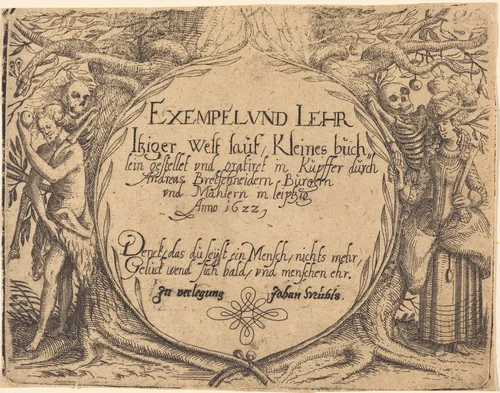 EXEMPEL VND LEHR
Itziger Welt lauf, Kleines büch,
lein gestellet vnd gradiret in Kupffer dürch
Andreas Bretschneidern Bürgern
vnd Mahlern in leipzig
Anno 1622,
Denck, das du seyst ein Mensch, nichts mehr,
Gelück wend sich bald, vnd menschen ehr.
In verlegung Johan